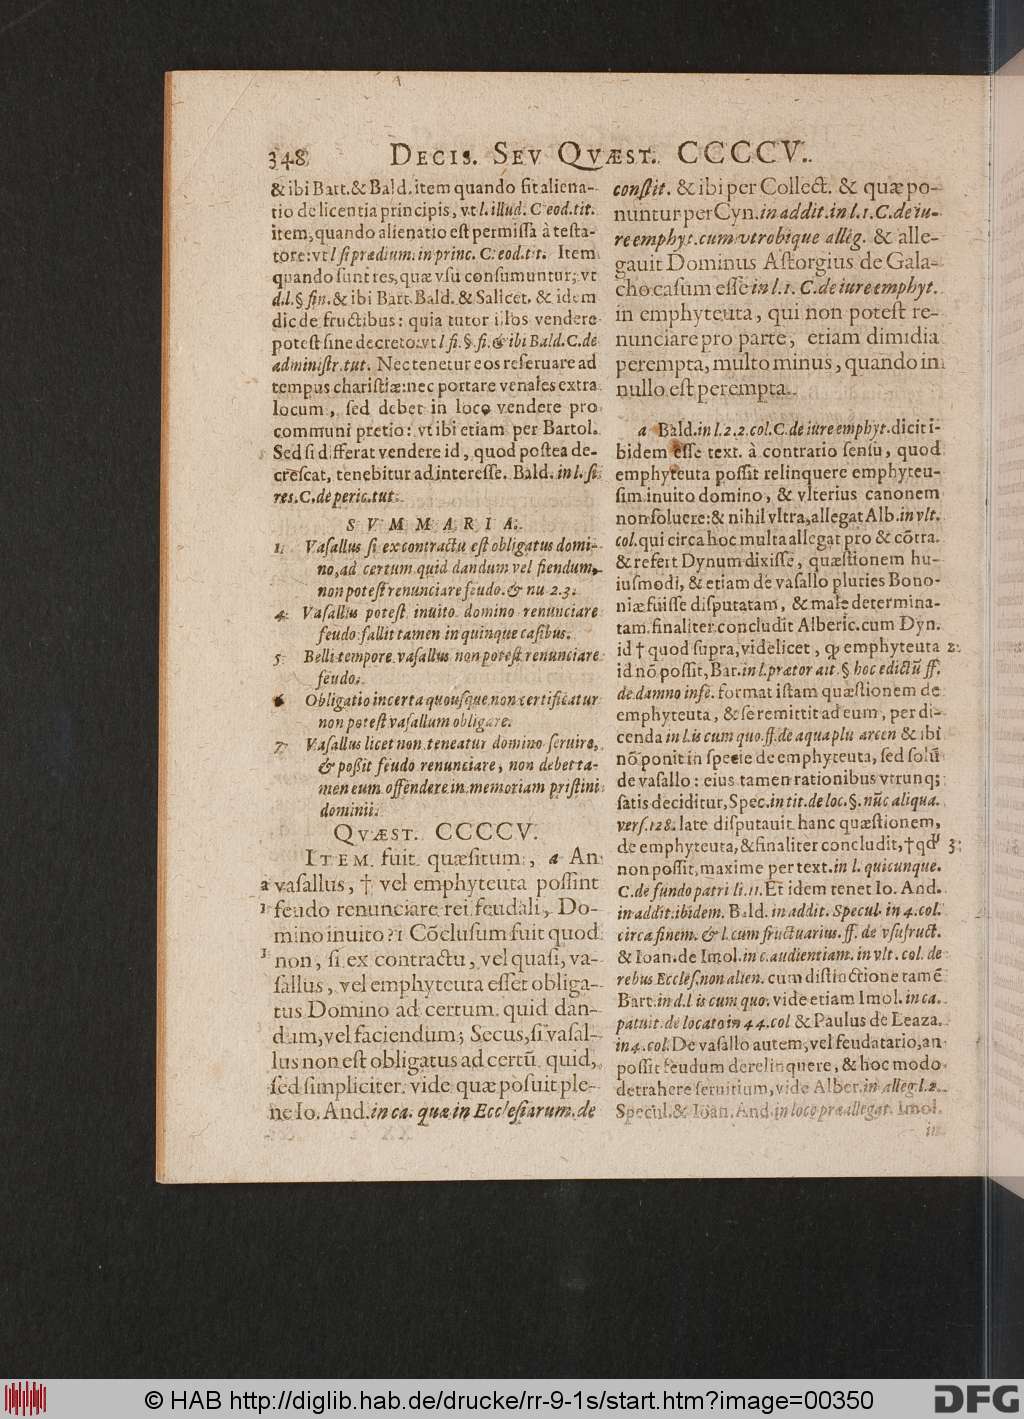 348 DECIS. SEV QVÆST. CCCCV.
& ibi Bart. & Bald. item quando sit aliena-
tio de licentia principis, vt l. illud. C eod. tit.
item, quando alienatio est permissa à testa-
tore: vt l si prædium. in princ. C. eod. tit. Item
quando sunt res, quæ vsu consumuntur, vt
d. l. § fin. & ibi Bart. Bald. & Salicet. & idem
dic de fructibus: quia tutor illos vendere
potest sine decreto: vt l fi. §. fi. & ibi Bald. C. de
administr. tut. Nec tenetur eos reseruare ad
tempus charistiæ: nec portare venales extra
locum, sed debet in loco vendere pro
communi pretio: vt ibi etiam per Bartol.
Sed si differat vendere id, quod postea de-
crescat, tenebitur ad interesse. Bald. in l. si
res. C. de peric. tut.
SVMMARIA.
1. Vasallus si ex contractu est obligatus domi-
no, ad certum quid dandum vel fiendum,
non potest renunciare feudo. & nu 2. 3.
4. Vasallus potest inuito domino renunciare
feudo fallit tamen in quinque casibus.
5 Belli tempore vasallus non potest renunciare
feudo.
6 Obligatio incerta quousque non certificatur
non potest vasallum obligare.
7. Vasallus licet non teneatur domino seruire,
& possit feudo renunciare, non debet ta-
men eum offendere in memoriam pristini
dominii.
QVÆST. CCCCV.
ITEM fuit quæsitum, a An
a vasallus, † vel emphyteuta possint
1 feudo renunciare rei feudali, Do-
mino inuito? 1 Cõclusum fuit quod
1 non, si ex contractu, vel quasi, va-
sallus, vel emphyteuta esset obliga-
tus Domino ad certum quid dan-
dum, vel faciendum; Secus, si vasal-
lus non est obligatus ad certũ quid,
sed simpliciter. vide quæ posuit ple-
ne Io. And. in ca. quæ in Ecclesiarum. de
constit. & ibi per Collect. & quæ po-
nuntur per Cyn. in addit. in l. 1. C. de iu-
re emphyt. cum vtrobique alleg. & alle-
gauit Dominus Astorgius de Gala-
cho casum esse in l. 1. C. de iure emphyt.
in emphyteuta, qui non potest re-
nunciare pro parte, etiam dimidia
perempta, multo minus, quando in
nullo est perempta.
a Bald. in l. 2. 2. col. C. de iure emphyt. dicit i-
bidem esse text. à contrario sensu, quod
emphyteuta possit relinquere emphyteu-
sim inuito domino, & vlterius canonem
non soluere: & nihil vltra, allegat Alb. in vlt.
col. qui circa hoc multa allegat pro & cõtra.
& refert Dynum dixisse, quæstionem hu-
iusmodi, & etiam de vasallo pluries Bono-
niæ fuisse disputatam, & male determina-
tam. finaliter concludit Alberic. cum Dyn.
id † quod supra, videlicet, ꝙ emphyteuta 2.
id nõ possit, Bar. in l. prætor ait. § hoc edictũ ff.
de damno infe. format istam quæstionem de
emphyteuta, & se remittit ad eum, per di-
cenda in l. is cum quo. ff. de aqua plu arcen & ibi
nõ ponit in specie de emphyteuta, sed solũ
de vasallo: eius tamen rationibus vtrunq;
satis deciditur, Spec. in tit. de loc. §. nũc aliqua.
vers. 128. late disputauit hanc quæstionem,
de emphyteuta, & finaliter concludit, † qd' 3.
non possit, maxime per text. in l. quicunque.
C. de fundo patri li. 11. Et idem tenet Io. And.
in addit. ibidem. Bald. in addit. Specul. in 4. col.
circa finem. & l. cum fructuarius. ff. de vsufruct.
& Ioan. de Imol. in c. audientiam. in vlt. col. de
rebus Eccles. non alien. cum distinctione tamẽ
Bart. in d. l is cum quo. vide etiam Imol. in ca.
patuit. de locato in 4 4. col & Paulus de Leaza.
in 4. col. De vasallo autem, vel feudatario, an
possit feudum derelinquere, & hoc modo
detrahere seruitium, vide Alber. in alleg. l. 2.
Specul. & Ioan. And. in loco præallegat. Imol.
in
© HAB http://diglib.hab.de/drucke/rr-9-1s/start.htm?image=00350
DFG